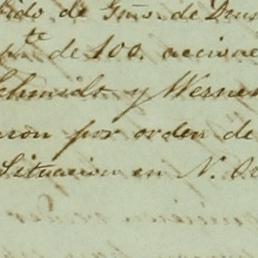 ido de Gmo. de Drus
te de 100. accione
Schmidt y Werner
ron por orden de
Situacion en N. Or